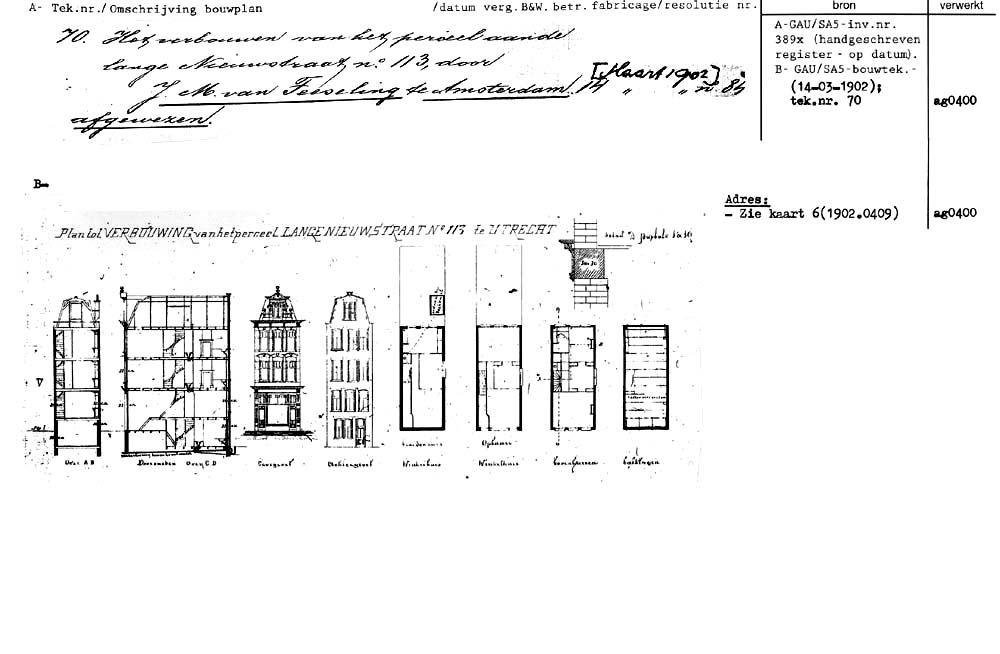 A- Tek.nr./Omschrijving bouwplan /datum verg.B&W. betr. fabricage/resolutie nr. bron verwerkt
70. Het verbouwen van het perceel aan de
lange Nieuwstraat no 113, door
J. M. van Fesseling te Amsterdam. 14 " " no 84
[Maart 1902]
afgewezen.
A-GAU/SA5-inv.nr.
389x (handgeschreven
register - op datum).
B- GAU/SA5-bouwtek.-
(14-03-1902);
tek.nr. 70 ag0400
B-
Adres:
- Zie kaart 6(1902.0409) ag0400
Plan tot VERBOUWING van het perceel LANGE NIEUWSTRAAT No 113 te UTRECHT
Over A B
Doorsneden Over C D
Voorgevel
Achtergevel
Fundeering
Winkelhuis
Opbouw
Winkelhuis
Bovenhuizen
balklagen